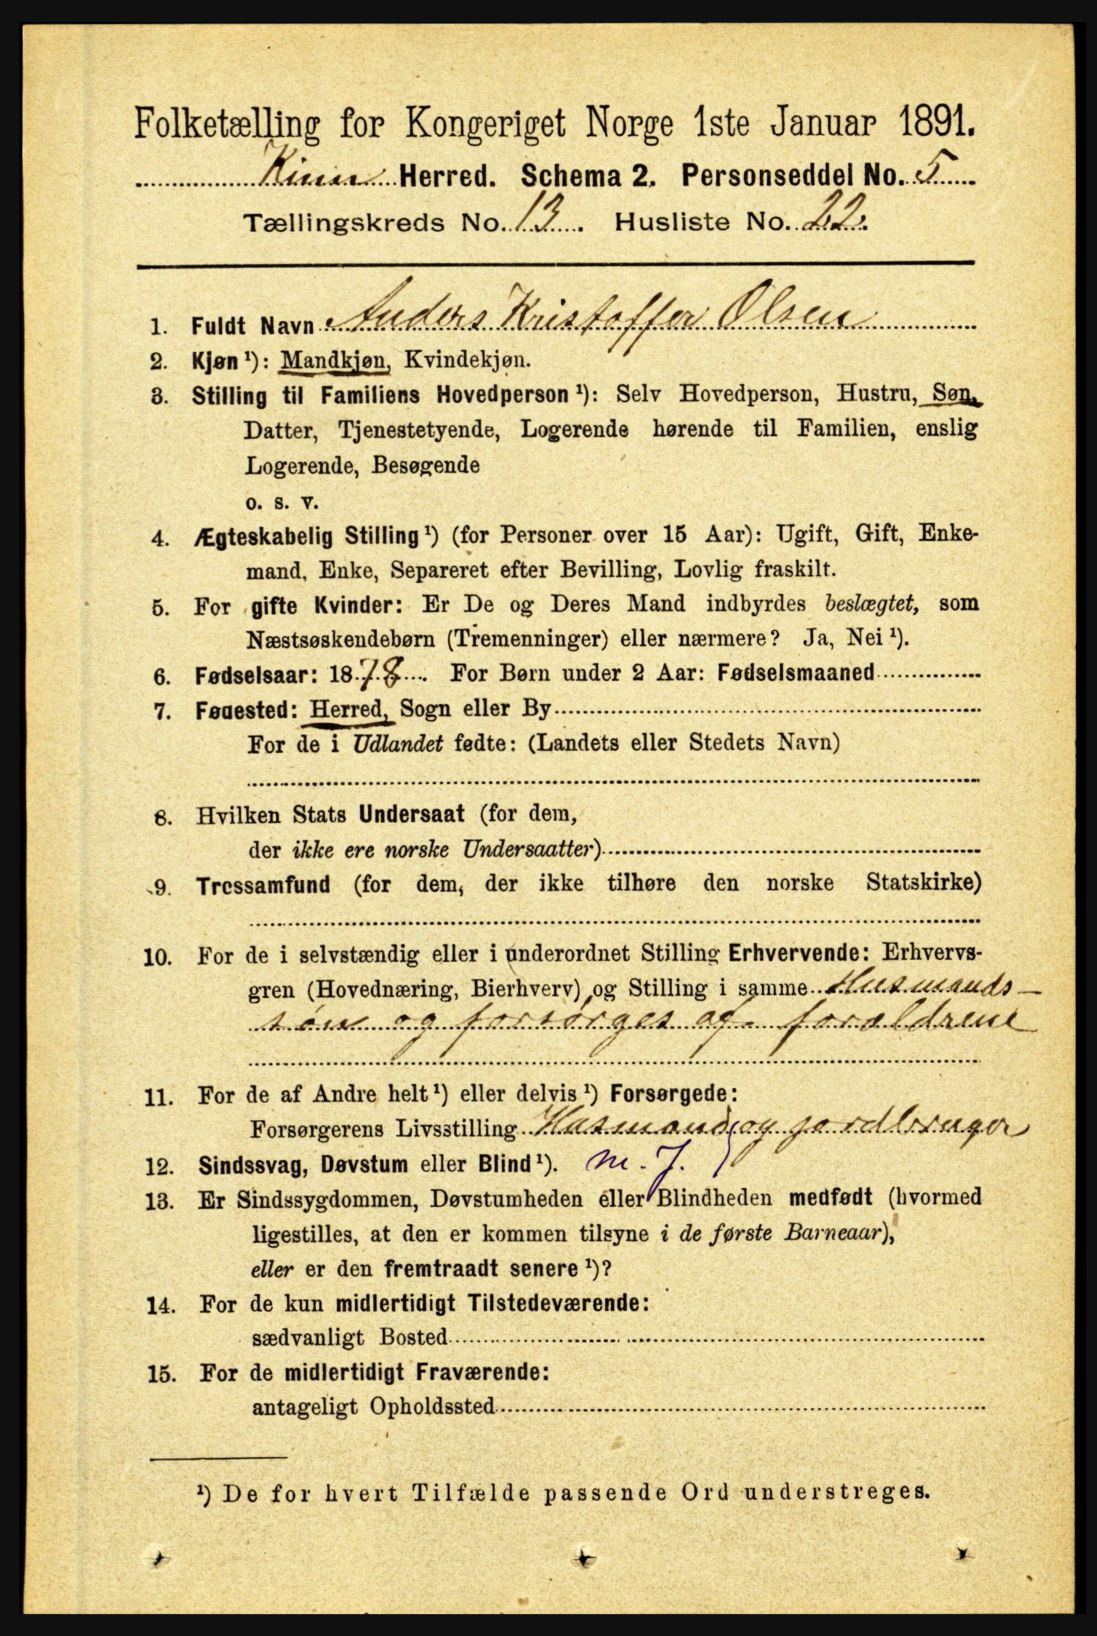 Folketælling for Kongeriget Norge 1ste Januar 1891.
Kinn Herred. Schema 2. Personseddel No. 5
Tællingskreds No. 13. Husliste No. 22.
1. Fuldt Navn Anders Kristoffer Olsen
2. Kjøn ¹): Mandkjøn, Kvindekjøn.
3. Stilling til Familiens Hovedperson ¹): Selv Hovedperson, Hustru, Søn,
Datter, Tjenestetyende, Logerende hørende til Familien, enslig
Logerende, Besøgende
o. s. v.
4. Ægteskabelig Stilling ¹) (for Personer over 15 Aar): Ugift, Gift, Enke-
mand, Enke, Separeret efter Bevilling, Lovlig fraskilt.
5. For gifte Kvinder: Er De og Deres Mand indbyrdes beslægtet, som
Næstsøskendebørn (Tremenninger) eller nærmere? Ja, Nei ¹).
6. Fødselsaar: 1878. For Børn under 2 Aar: Fødselsmaaned
7. Fødested: Herred, Sogn eller By
For de i Udlandet fødte: (Landets eller Stedets Navn)
8. Hvilken Stats Undersaat (for dem,
der ikke ere norske Undersaatter)
9. Trossamfund (for dem, der ikke tilhøre den norske Statskirke)
10. For de i selvstændig eller i underordnet Stilling Erhvervende: Erhvervs-
gren (Hovednæring, Bierhverv) og Stilling i samme Husmands-
søn og forsørges af forældrene
11. For de af Andre helt ¹) eller delvis ¹) Forsørgede:
Forsørgerens Livsstilling Husmand og jordbruger
12. Sindssvag, Døvstum eller Blind ¹). m. J.
13. Er Sindssygdommen, Døvstumheden eller Blindheden medfødt (hvormed
ligestilles, at den er kommen tilsyne i de første Barneaar),
eller er den fremtraadt senere ¹)?
14. For de kun midlertidigt Tilstedeværende:
sædvanligt Bosted
15. For de midlertidigt Fraværende:
antageligt Opholdssted
¹) De for hvert Tilfælde passende Ord understreges.